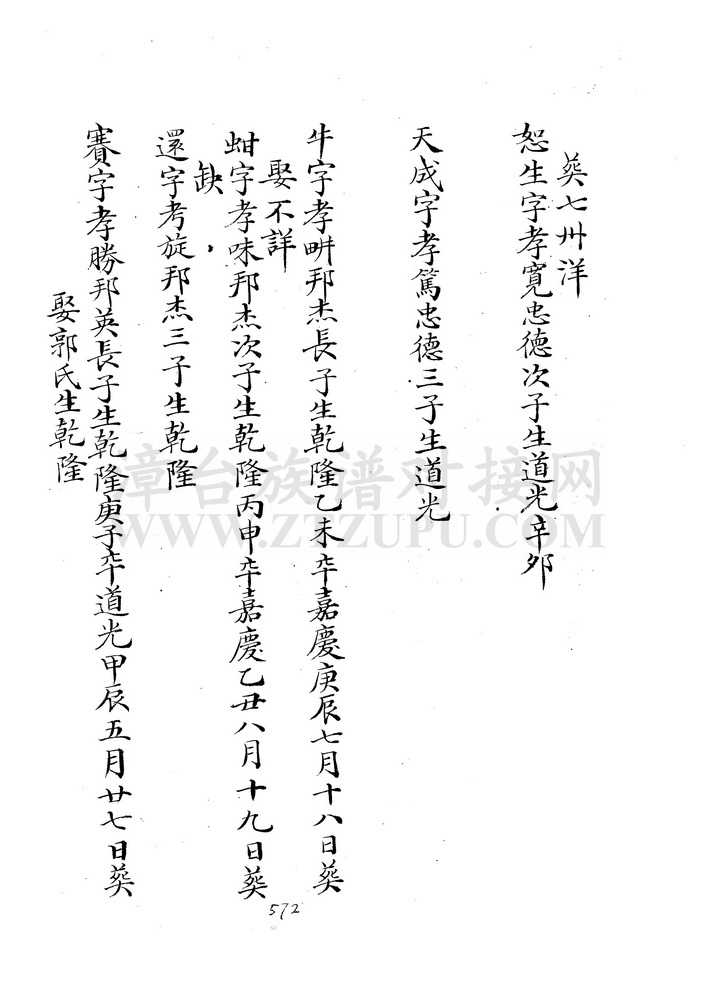 葵七卅洋
恕生字孝寬忠德次子生道光辛夘
天成字孝篤忠德三子生道光
牛字孝畊邦杰長子生乾隆乙未卒嘉慶庚辰七月十八日葵
娶不詳
蚶字孝味邦杰次子生乾隆丙申卒嘉慶乙丑八月十九日葵
缺，
還字考旋邦杰三子生乾隆
賽字孝勝邦英長子生乾隆庚子卒道光甲辰五月廿七日葵
娶郭氏生乾隆
572
章台族谱对接网
WWW.ZTZUPU.COM